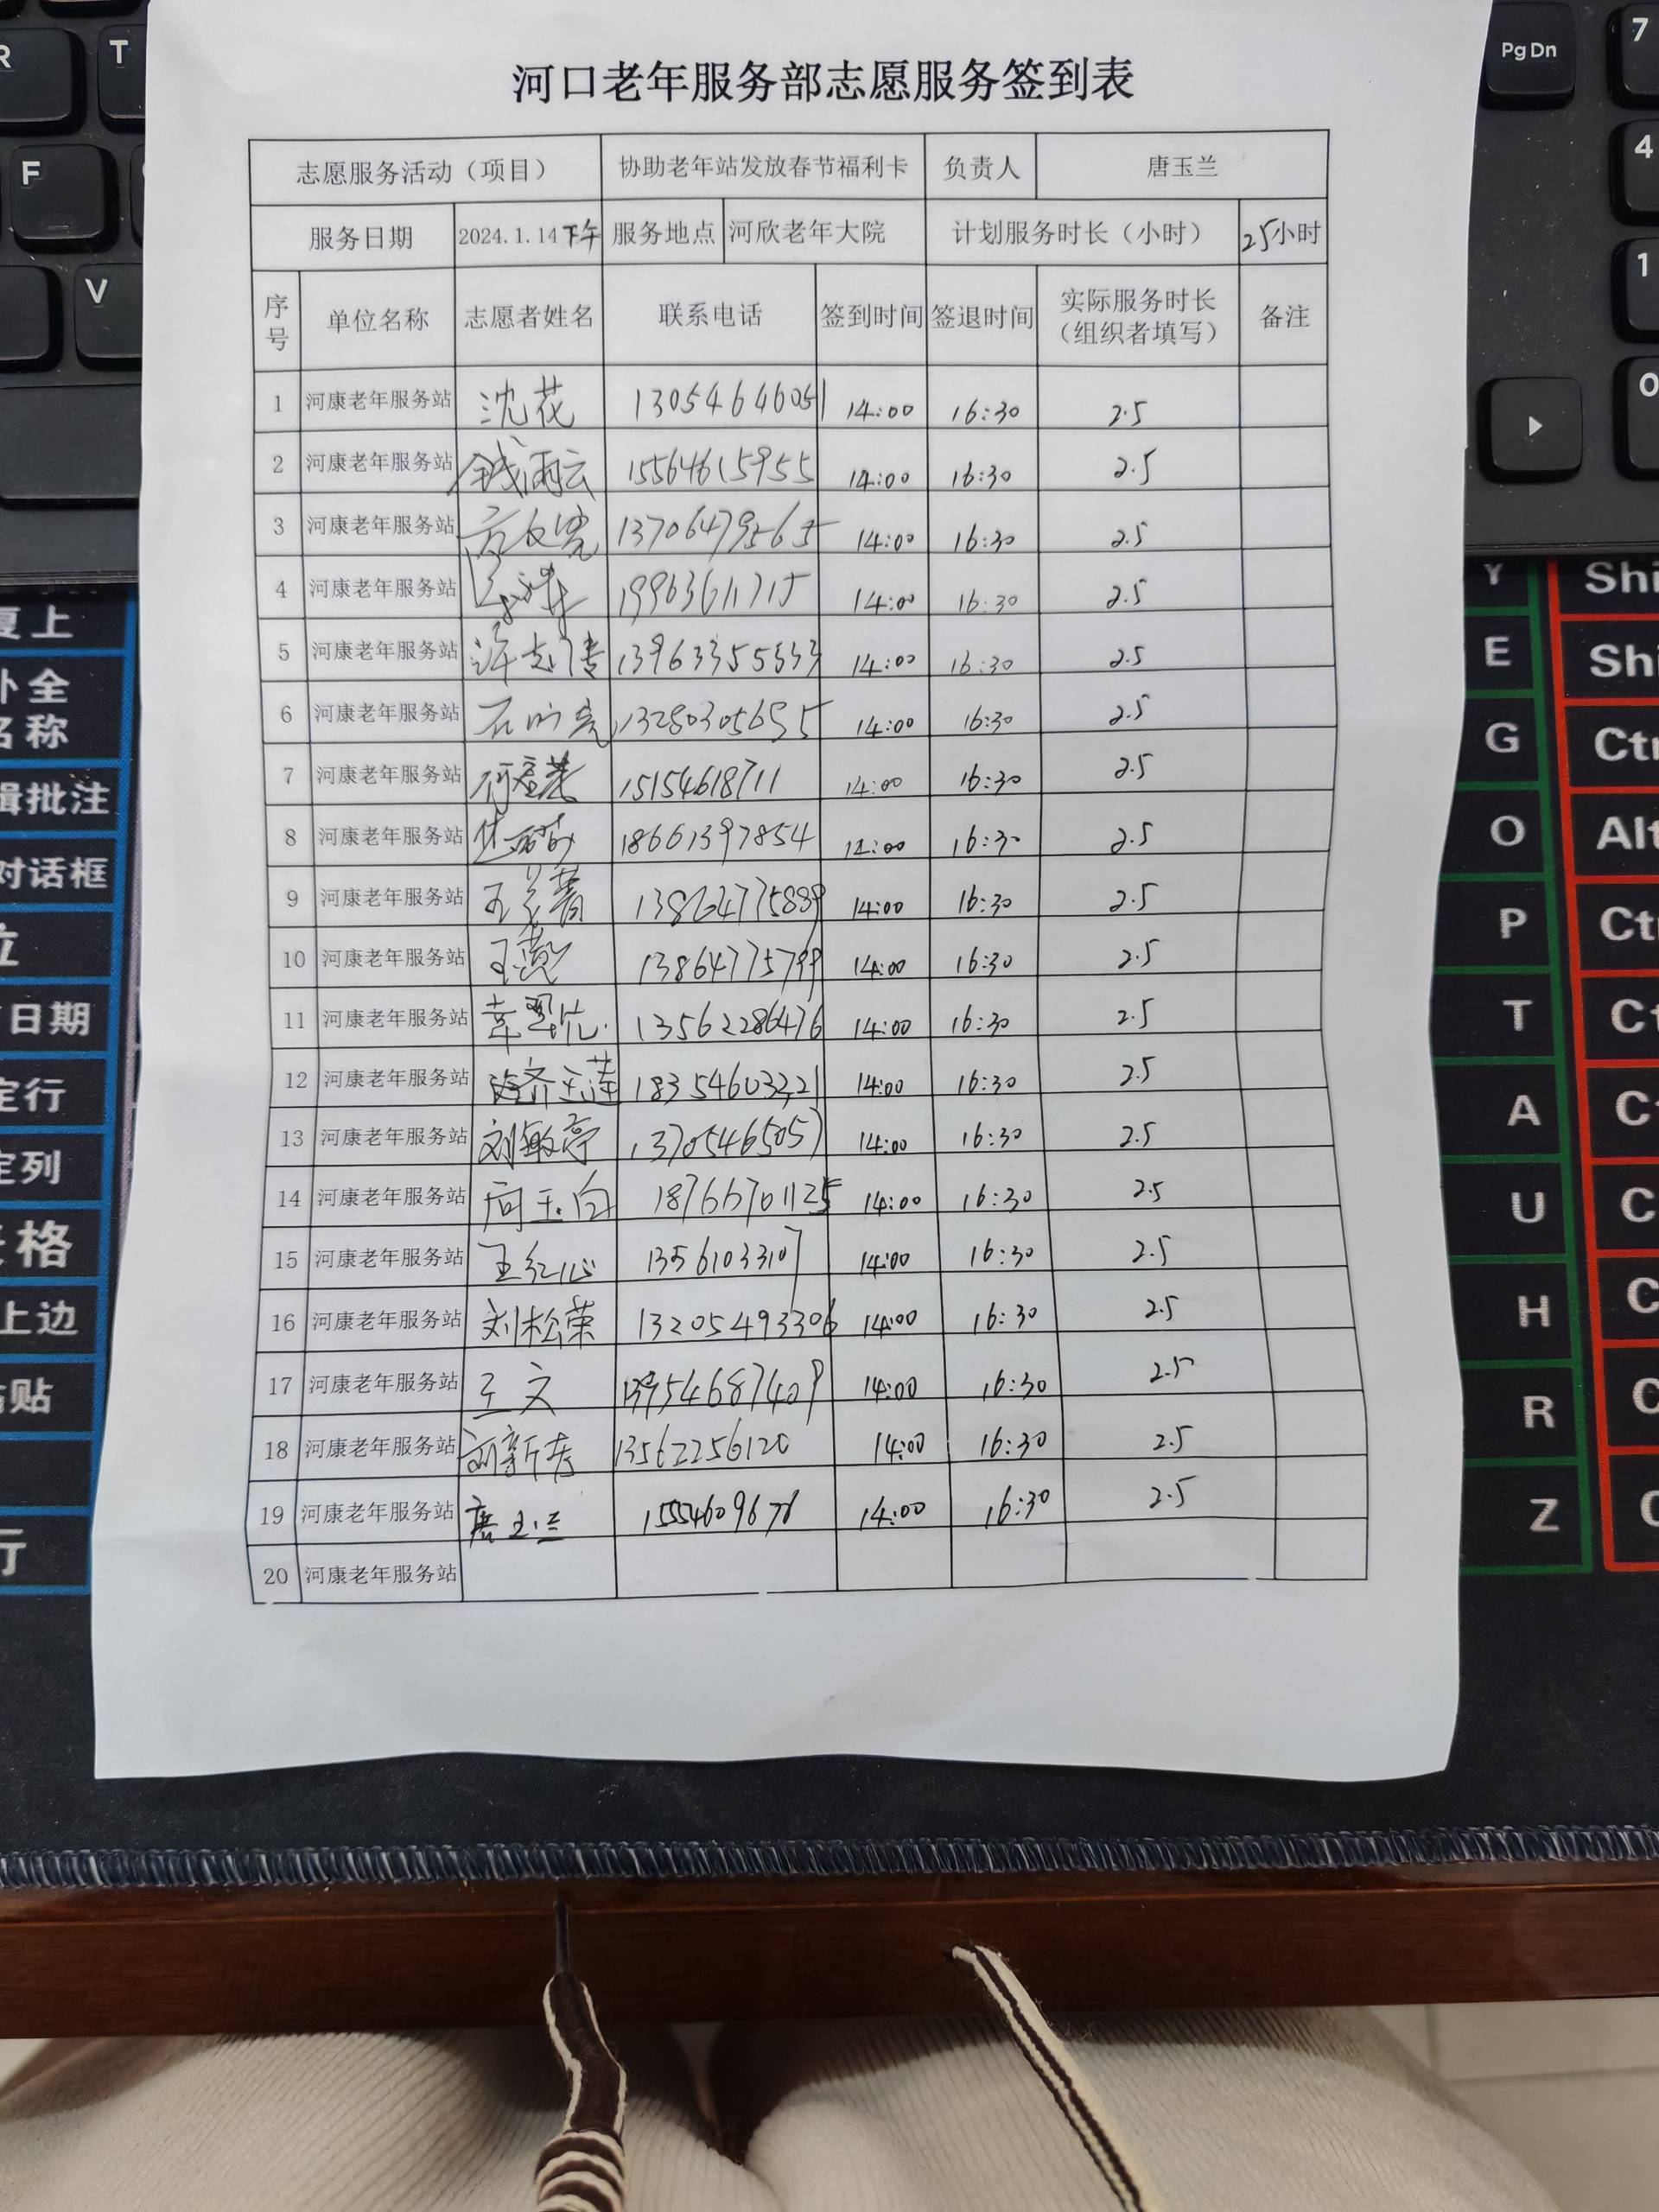 河口老年服务部志愿服务签到表
志愿服务活动（项目） 协助老年站发放春节福利卡 负责人 唐玉兰
服务日期 2024.1.14下午 服务地点 河欣老年大院 计划服务时长（小时） 2.5小时
序号 单位名称 志愿者姓名 联系电话 签到时间 签退时间 实际服务时长（组织者填写） 备注
1 河康老年服务站 沈花 13054646051 14:00 16:30 2.5
2 河康老年服务站 钱雨云 15564615955 14:00 16:30 2.5
3 河康老年服务站 13706479565 14:00 16:30 2.5
4 河康老年服务站 19963611715 14:00 16:30 2.5
5 河康老年服务站 14:00 16:30 2.5
6 河康老年服务站 13280305655 14:00 16:30 2.5
7 河康老年服务站 15154618711 14:00 16:30 2.5
8 河康老年服务站 18661397854 14:00 16:30 2.5
9 河康老年服务站 14:00 16:30 2.5
10 河康老年服务站 13864775799 14:00 16:30 2.5
11 河康老年服务站 13562286476 14:00 16:30 2.5
12 河康老年服务站 齐玉莲 18354603221 14:00 16:30 2.5
13 河康老年服务站 刘敏亭 13705465057 14:00 16:30 2.5
14 河康老年服务站 18766701125 14:00 16:30 2.5
15 河康老年服务站 王红心 13561033107 14:00 16:30 2.5
16 河康老年服务站 刘松荣 13205493306 14:00 16:30 2.5
17 河康老年服务站 王文 13954687409 14:00 16:30 2.5
18 河康老年服务站 13562256120 14:00 16:30 2.5
19 河康老年服务站 唐玉兰 15554609676 14:00 16:30 2.5
20 河康老年服务站
R
T
F
V
Pg Dn
7
4
1
0
复上
补全
名称
辑批注
对话框
位
日期
定行
定列
格
上边
粘贴
行
Y
E
G
O
P
T
A
U
H
R
Z
Shi
Shi
Ctr
Alt
Ct
C